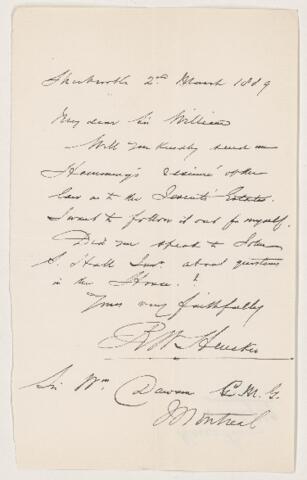 Sherbrooke 2nd March 1889
My dear Sir William
Will you kindly send me
Hemming's resumé of the
law as to the Jesuits' Estates.
I want to follow it out for myself.
Did you speak to John
S. Hall Junr. about questions
in the House?
Yours very faithfully
R W Heneker
Sir Wm Dawson C.M.G.
Montreal